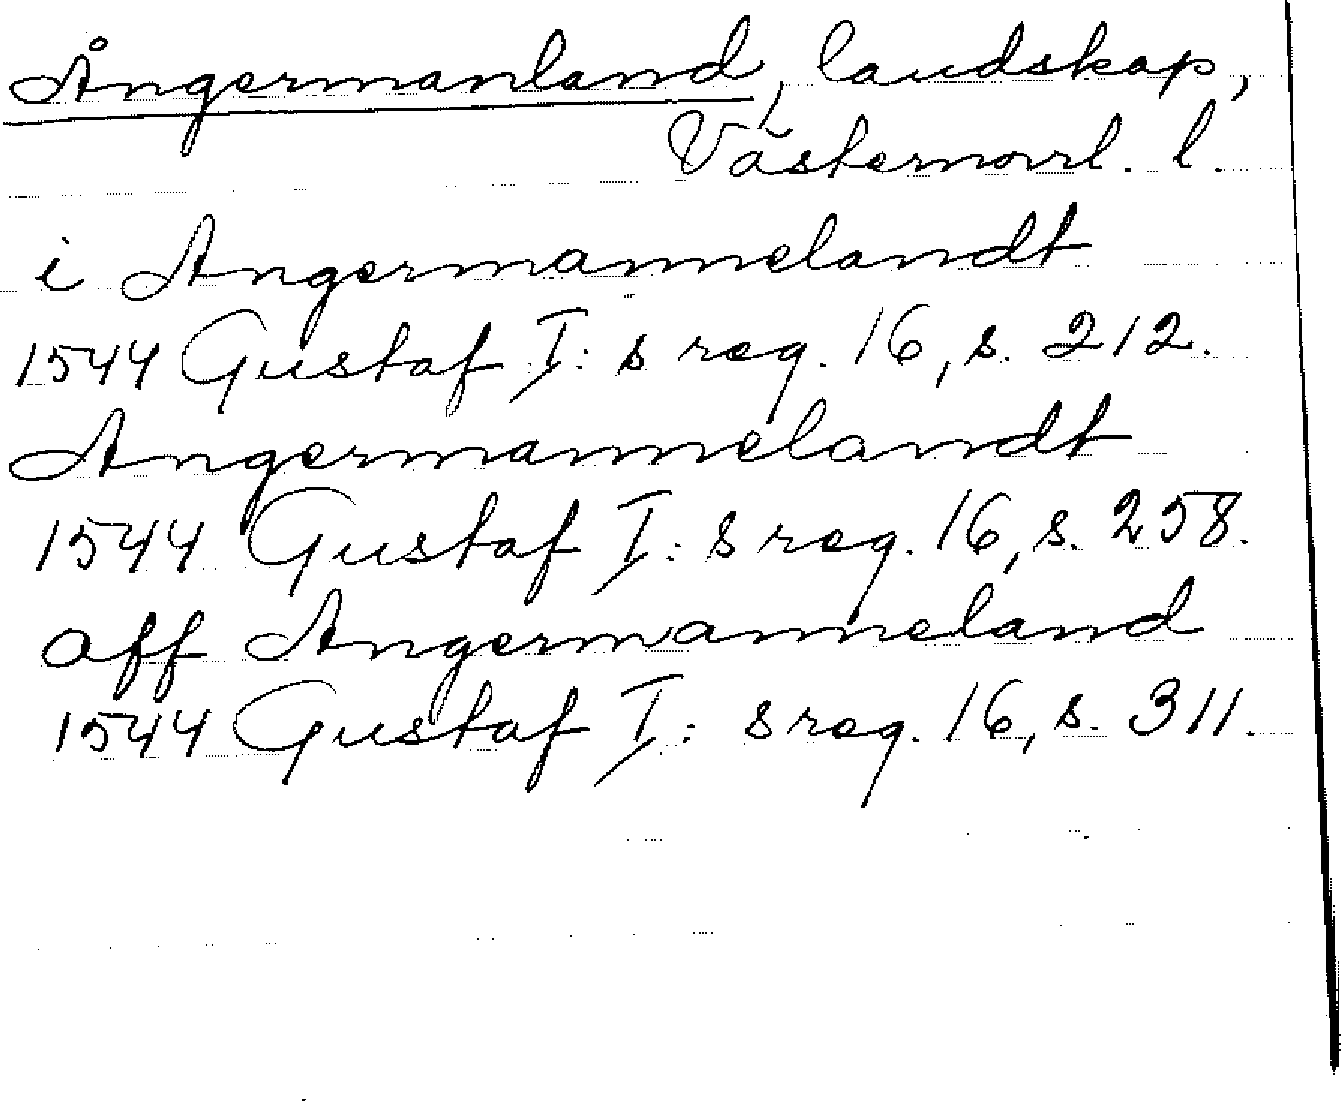 Ångermanland, landskap,
Västernorrl. l.
i Angermannelandt
1544 Gustaf I:s reg. 16, s. 212.
Angermannelandt
1544 Gustaf I:s reg. 16, s. 258.
aff Angermanneland
1544 Gustaf I:s reg. 16, s. 311.